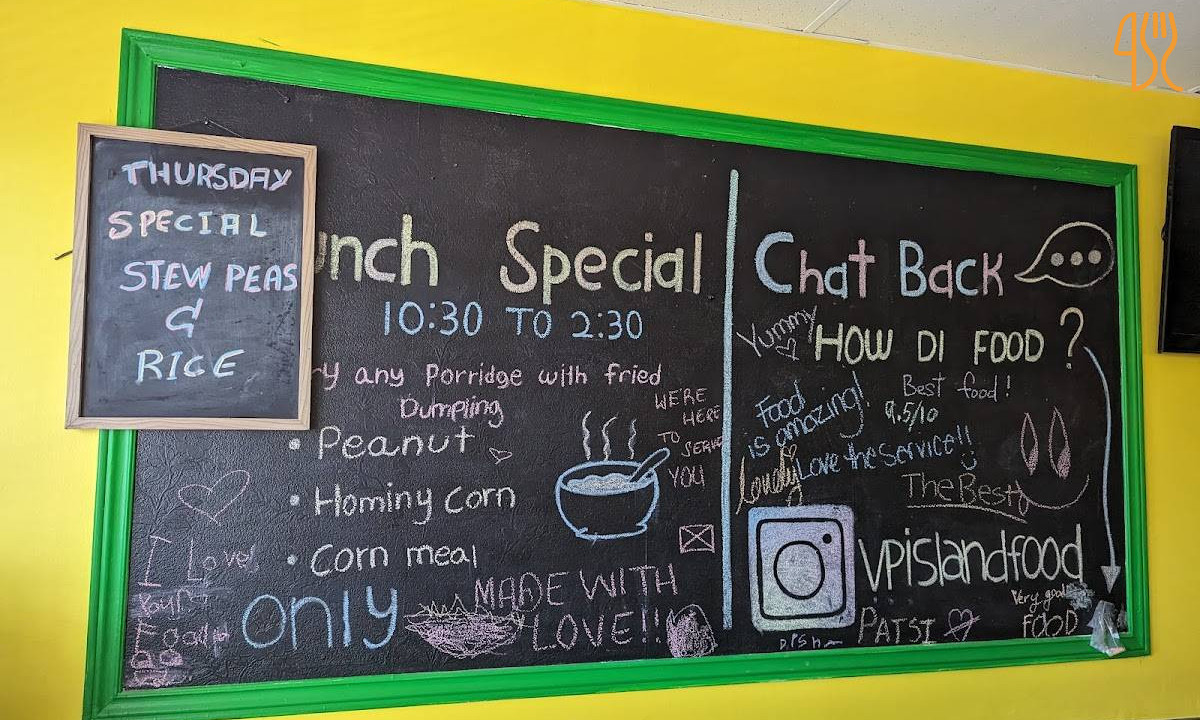 THURSDAY
SPECIAL
STEW PEAS
&
RICE
unch Special
10:30 TO 2:30
ry any Porridge with fried
Dumpling
• Peanut
• Hominy corn
• Corn meal
only
WE'RE
HERE
TO SERVE
YOU
I Love
Food
MADE WITH
LOVE!!
Chat Back
Yummy
HOW DI FOOD?
Food
is amazing!
Best food!
9.5/10
Love the Service!!
lovely
The Best
vpislandfood
PATSI
Very good
FOOD